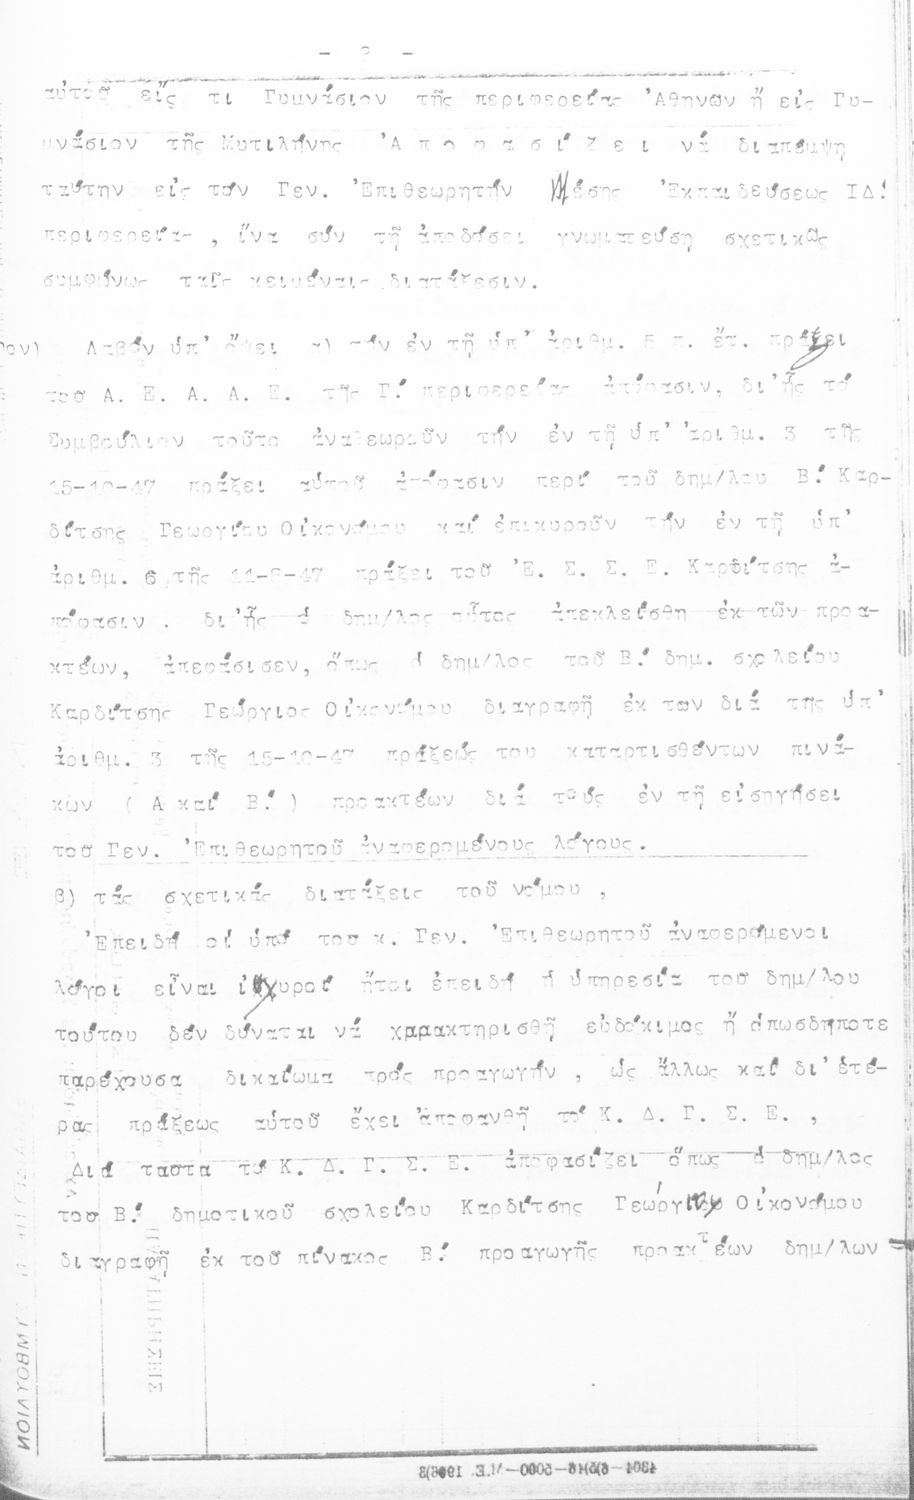 - 2 -
αὐτοῦ εἴς τι Γυμνάσιον τῆς περιφερείας Ἀθηνῶν ἤ εἰς Γυ-
μνάσιον τῆς Μυτιλήνης Ἀ π ο φ α σ ί ζ ε ι νά διαπέμψη
ταύτην εἰς τόν Γεν. Ἐπιθεωρητήν Μέσης Ἐκπαιδεύσεως ΙΔ΄
περιφερείας , ἵνα σύν τῇ ἀποδόσει γνωματεύση σχετικῶς
συμφώνως ταῖς κειμέναις διατάξεσιν.
Λαβόν ὑπ' ὄψει α) τήν ἐν τῇ ὑπ' ἀριθμ. 5 π. ἔτ. πράξει
τοῦ Α. Ε. Α. Δ. Ε. τῆς Γ΄ περιφερείας ἀπόφασιν, δι'ἧς τό
Συμβούλιον τοῦτο ἀναθεωροῦν τήν ἐν τῇ ὑπ' ἀριθμ. 3 τῆς
15-10-47 πράξει αὐτοῦ ἀπόφασιν περί τοῦ δημ/λου Β΄ Καρ-
δίτσης Γεωργίου Οἰκονόμου καί ἐπικυροῦν τήν ἐν τῇ ὑπ'
ἀριθμ. 6 τῆς 11-8-47 πράξει τοῦ Ἐ. Σ. Σ. Ε. Καρδίτσης ἀ-
πόφασιν . δι'ἧς ὁ δημ/λος οὗτος ἀπεκλείσθη ἐκ τῶν προα-
κτέων, ἀπεφάσισεν, ὅπως ὁ δημ/λος τοῦ Β΄ δημ. σχολείου
Καρδίτσης Γεώργιος Οἰκονόμου διαγραφῇ ἐκ των διά της ὑπ'
ἀριθμ. 3 τῆς 15-10-47 πράξεώς του καταρτισθέντων πινά-
κων ( Α καί Β΄ ) προακτέων διά τούς ἐν τῇ εἰσηγήσει
τοῦ Γεν. Ἐπιθεωρητοῦ ἀναφερομένους λόγους.
β) τάς σχετικάς διατάξεις τοῦ νόμου ,
Ἐπειδή οἱ ὑπό του κ. Γεν. Ἐπιθεωρητοῦ ἀναφερόμενοι
λόγοι εἶναι ἰσχυροί ἤτοι ἐπειδή ἡ ὑπηρεσία τοῦ δημ/λου
τούτου δέν δύναται νά χαρακτηρισθῇ εὐδόκιμος ἤ ὁπωσδήποτε
παρέχουσα δικαίωμα πρός προαγωγήν , ὡς ἄλλως καί δι' ἑτέ-
ρας πράξεως αὐτοῦ ἔχει ἀποφανθῇ τό Κ. Δ. Γ. Σ. Ε. ,
Διά ταῦτα τό Κ. Δ. Γ. Σ. Ε. ἀποφασίζει ὅπως ὁ δημ/λος
τοῦ Β΄ δημοτικοῦ σχολείου Καρδίτσης Γεώργιος Οἰκονόμου
διαγραφῇ ἐκ τοῦ πίνακος Β΄ προαγωγῆς προακτέων δημ/λων